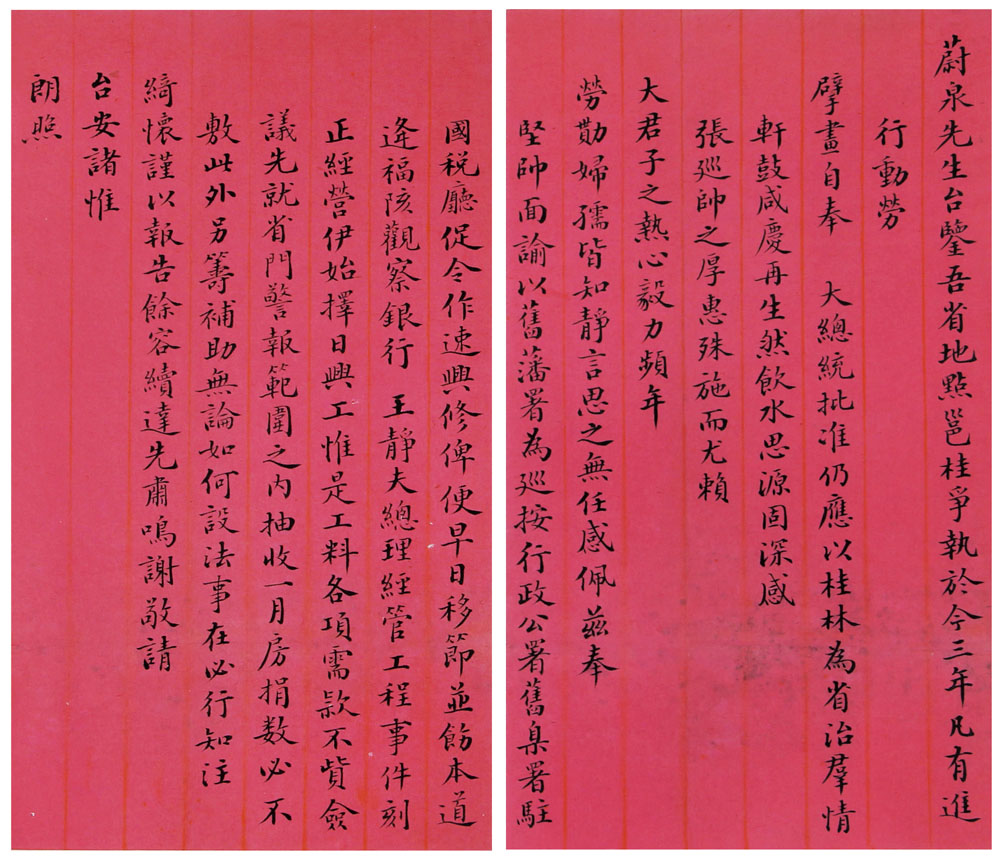 蔚泉先生台鑒吾省地點邕桂爭執於今三年凡有進
行動勞
擘畫自奉 大總統批准仍應以桂林為省治羣情
軒鼓咸慶再生然飲水思源固深感
張巡帥之厚惠殊施而尤賴
大君子之熱心毅力頻年
勞勩婦孺皆知靜言思之無任感佩茲奉
堅帥面諭以舊藩署為巡按行政公署舊臬署駐
國稅廳促令作速興修俾便早日移節並飭本道
逄福陔觀察銀行 王靜夫總理經管工程事件刻
正經營伊始擇日興工惟是工料各項需款不貲僉
議先就省門警報範圍之內抽收一月房捐数必不
敷此外另籌補助無論如何設法事在必行知注
綺懷謹以報告餘容續達先肅鳴謝敬請
台安諸惟
朗照